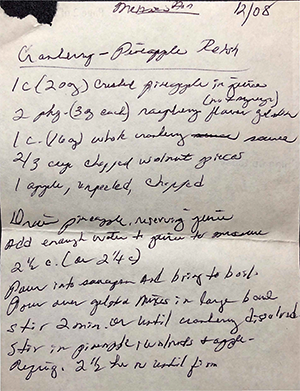 12/08
Cranberry-Pineapple Relish
1 c (20 oz) crushed pineapple in juice
2 pkg. (3 oz each) raspberry flavor gelatin
(no sugar)
1 c. (16 oz) whole cranberry sauce
2/3 cup chopped walnut pieces
1 apple, unpeeled, chopped
Drain pineapple, reserving juice
Add enough water to juice to measure
2 1/2 c. (or 2 1/4 c)
Pour into saucepan and bring to boil.
Pour over gelatin mixes in large bowl
stir 2 min. or until cranberry dissolved
Stir in pineapple, walnuts + apple.
Refrig. 2 1/2 hr or until firm